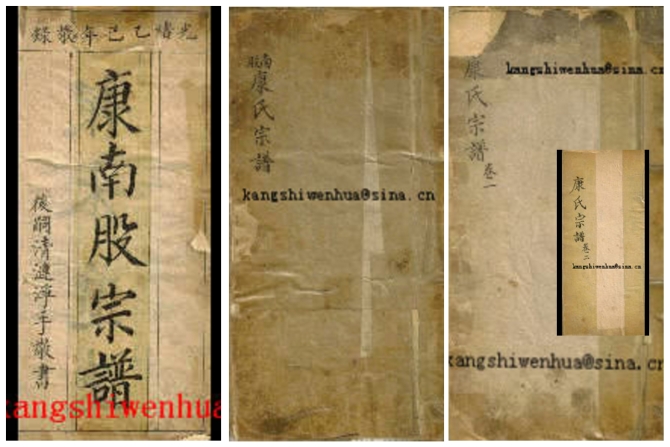 光緒乙巳年敬錄
康南股宗譜
後嗣清漣淨手敬書
kangshiwenhua
南股
康氏宗譜
kangshiwenhua@sina.cn
康氏宗譜
卷一
kangshiwenhua@sina.cn
康氏宗譜
卷二
kangshiwenhua@sina.cn
kangshiwenhua@sina.cn